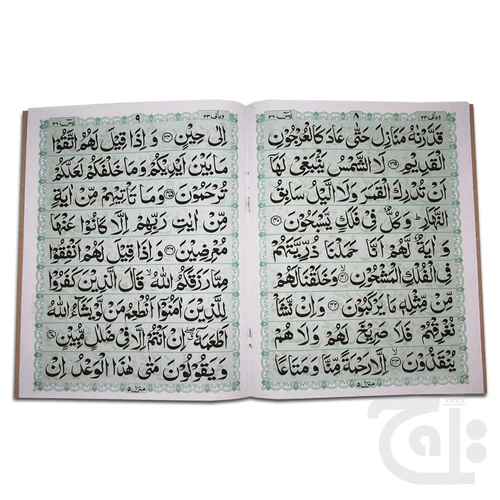 یٰسٓ ٣٦
٨
ومالی ٢٣
قَدَّرْنٰهُ مَنَازِلَ حَتّٰى عَادَ كَالْعُرْجُوْنِ
الْقَدِيْمِ ﴿٣٩﴾ لَا الشَّمْسُ يَنْۢبَغِيْ لَهَاۤ
اَنْ تُدْرِكَ الْقَمَرَ وَلَا الَّيْلُ سَابِقُ
النَّهَارِ ؕ وَكُلٌّ فِيْ فَلَكٍ يَّسْبَحُوْنَ ﴿٤٠﴾
وَ اٰيَةٌ لَّهُمْ اَنَّا حَمَلْنَا ذُرِّيَّتَهُمْ
فِي الْفُلْكِ الْمَشْحُوْنِ ﴿٤١﴾ وَخَلَقْنَا لَهُمْ
مِّنْ مِّثْلِهٖ مَا يَرْكَبُوْنَ ﴿٤٢﴾ وَاِنْ نَّشَاْ
نُغْرِقْهُمْ فَلَا صَرِيْخَ لَهُمْ وَلَا هُمْ
يُنْقَذُوْنَ ﴿٤٣﴾ اِلَّا رَحْمَةً مِّنَّا وَمَتَاعًا
منزل ٥
یٰسٓ ٣٦
٩
ومالی ٢٣
اِلٰى حِيْنٍ ﴿٤٤﴾ وَ اِذَا قِيْلَ لَهُمُ اتَّقُوْا
مَا بَيْنَ اَيْدِيْكُمْ وَمَا خَلْفَكُمْ لَعَلَّكُمْ
تُرْحَمُوْنَ ﴿٤٥﴾ وَمَا تَاْتِيْهِمْ مِّنْ اٰيَةٍ
مِّنْ اٰيٰتِ رَبِّهِمْ اِلَّا كَانُوْا عَنْهَا
مُعْرِضِيْنَ ﴿٤٦﴾ وَاِذَا قِيْلَ لَهُمْ اَنْفِقُوْا
مِمَّا رَزَقَكُمُ اللّٰهُ ۙ قَالَ الَّذِيْنَ كَفَرُوْا
لِلَّذِيْنَ اٰمَنُوْۤا اَنُطْعِمُ مَنْ لَّوْ يَشَآءُ اللّٰهُ
اَطْعَمَهٗۤ ۖ اِنْ اَنْتُمْ اِلَّا فِيْ ضَلٰلٍ مُّبِيْنٍ ﴿٤٧﴾
وَ يَقُوْلُوْنَ مَتٰى هٰذَا الْوَعْدُ اِنْ
منزل ٥